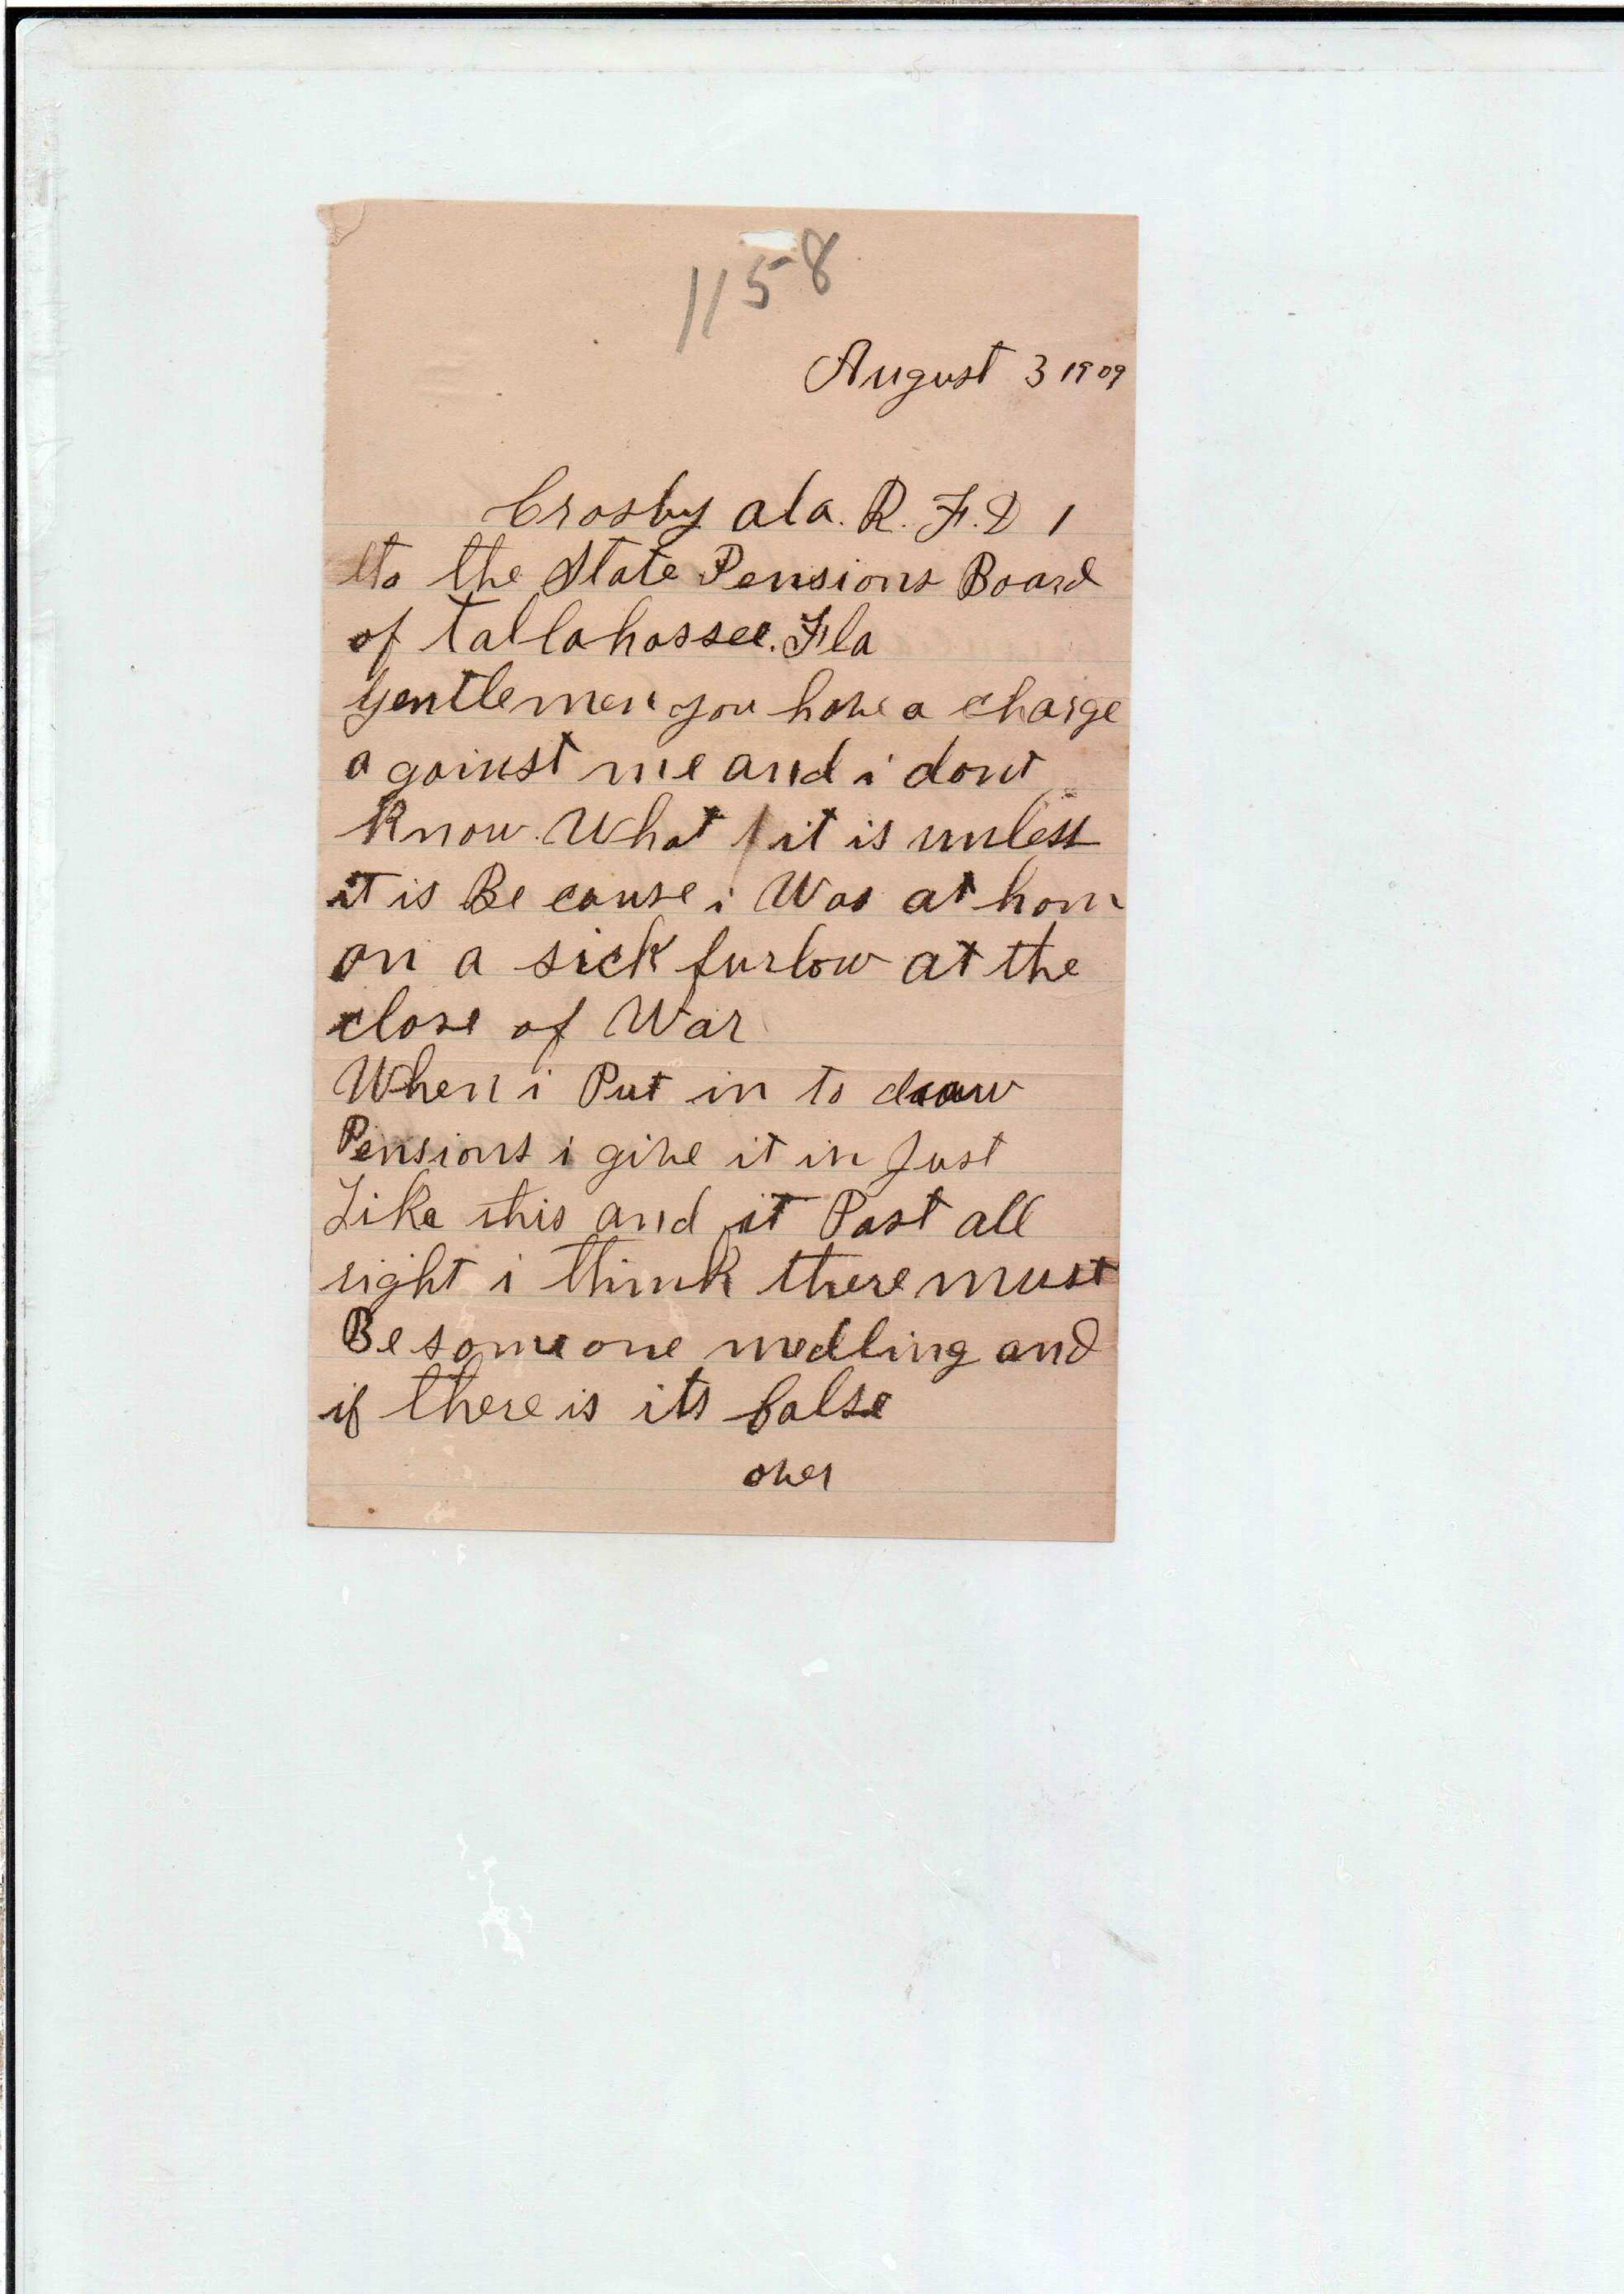 1158
August 3 1909
Crosby ala. R. F. D 1
to the State Pensions Board
of Tallahassee. Fla
Gentlemen you have a charge
a gainst me and i dont
Know What it is unless
it is Be cause i Was at hom
on a sick furlow at the
close of War
When i Put in to draw
Pensions i give it in Just
Like this and it Past all
right i think there must
Be some one medling and
if there is its false
over